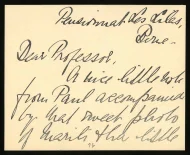 Pensionnat Les Lilas,
Dear Professor,
A nice little note
from Paul accompanied
by that sweet photo
of & the little